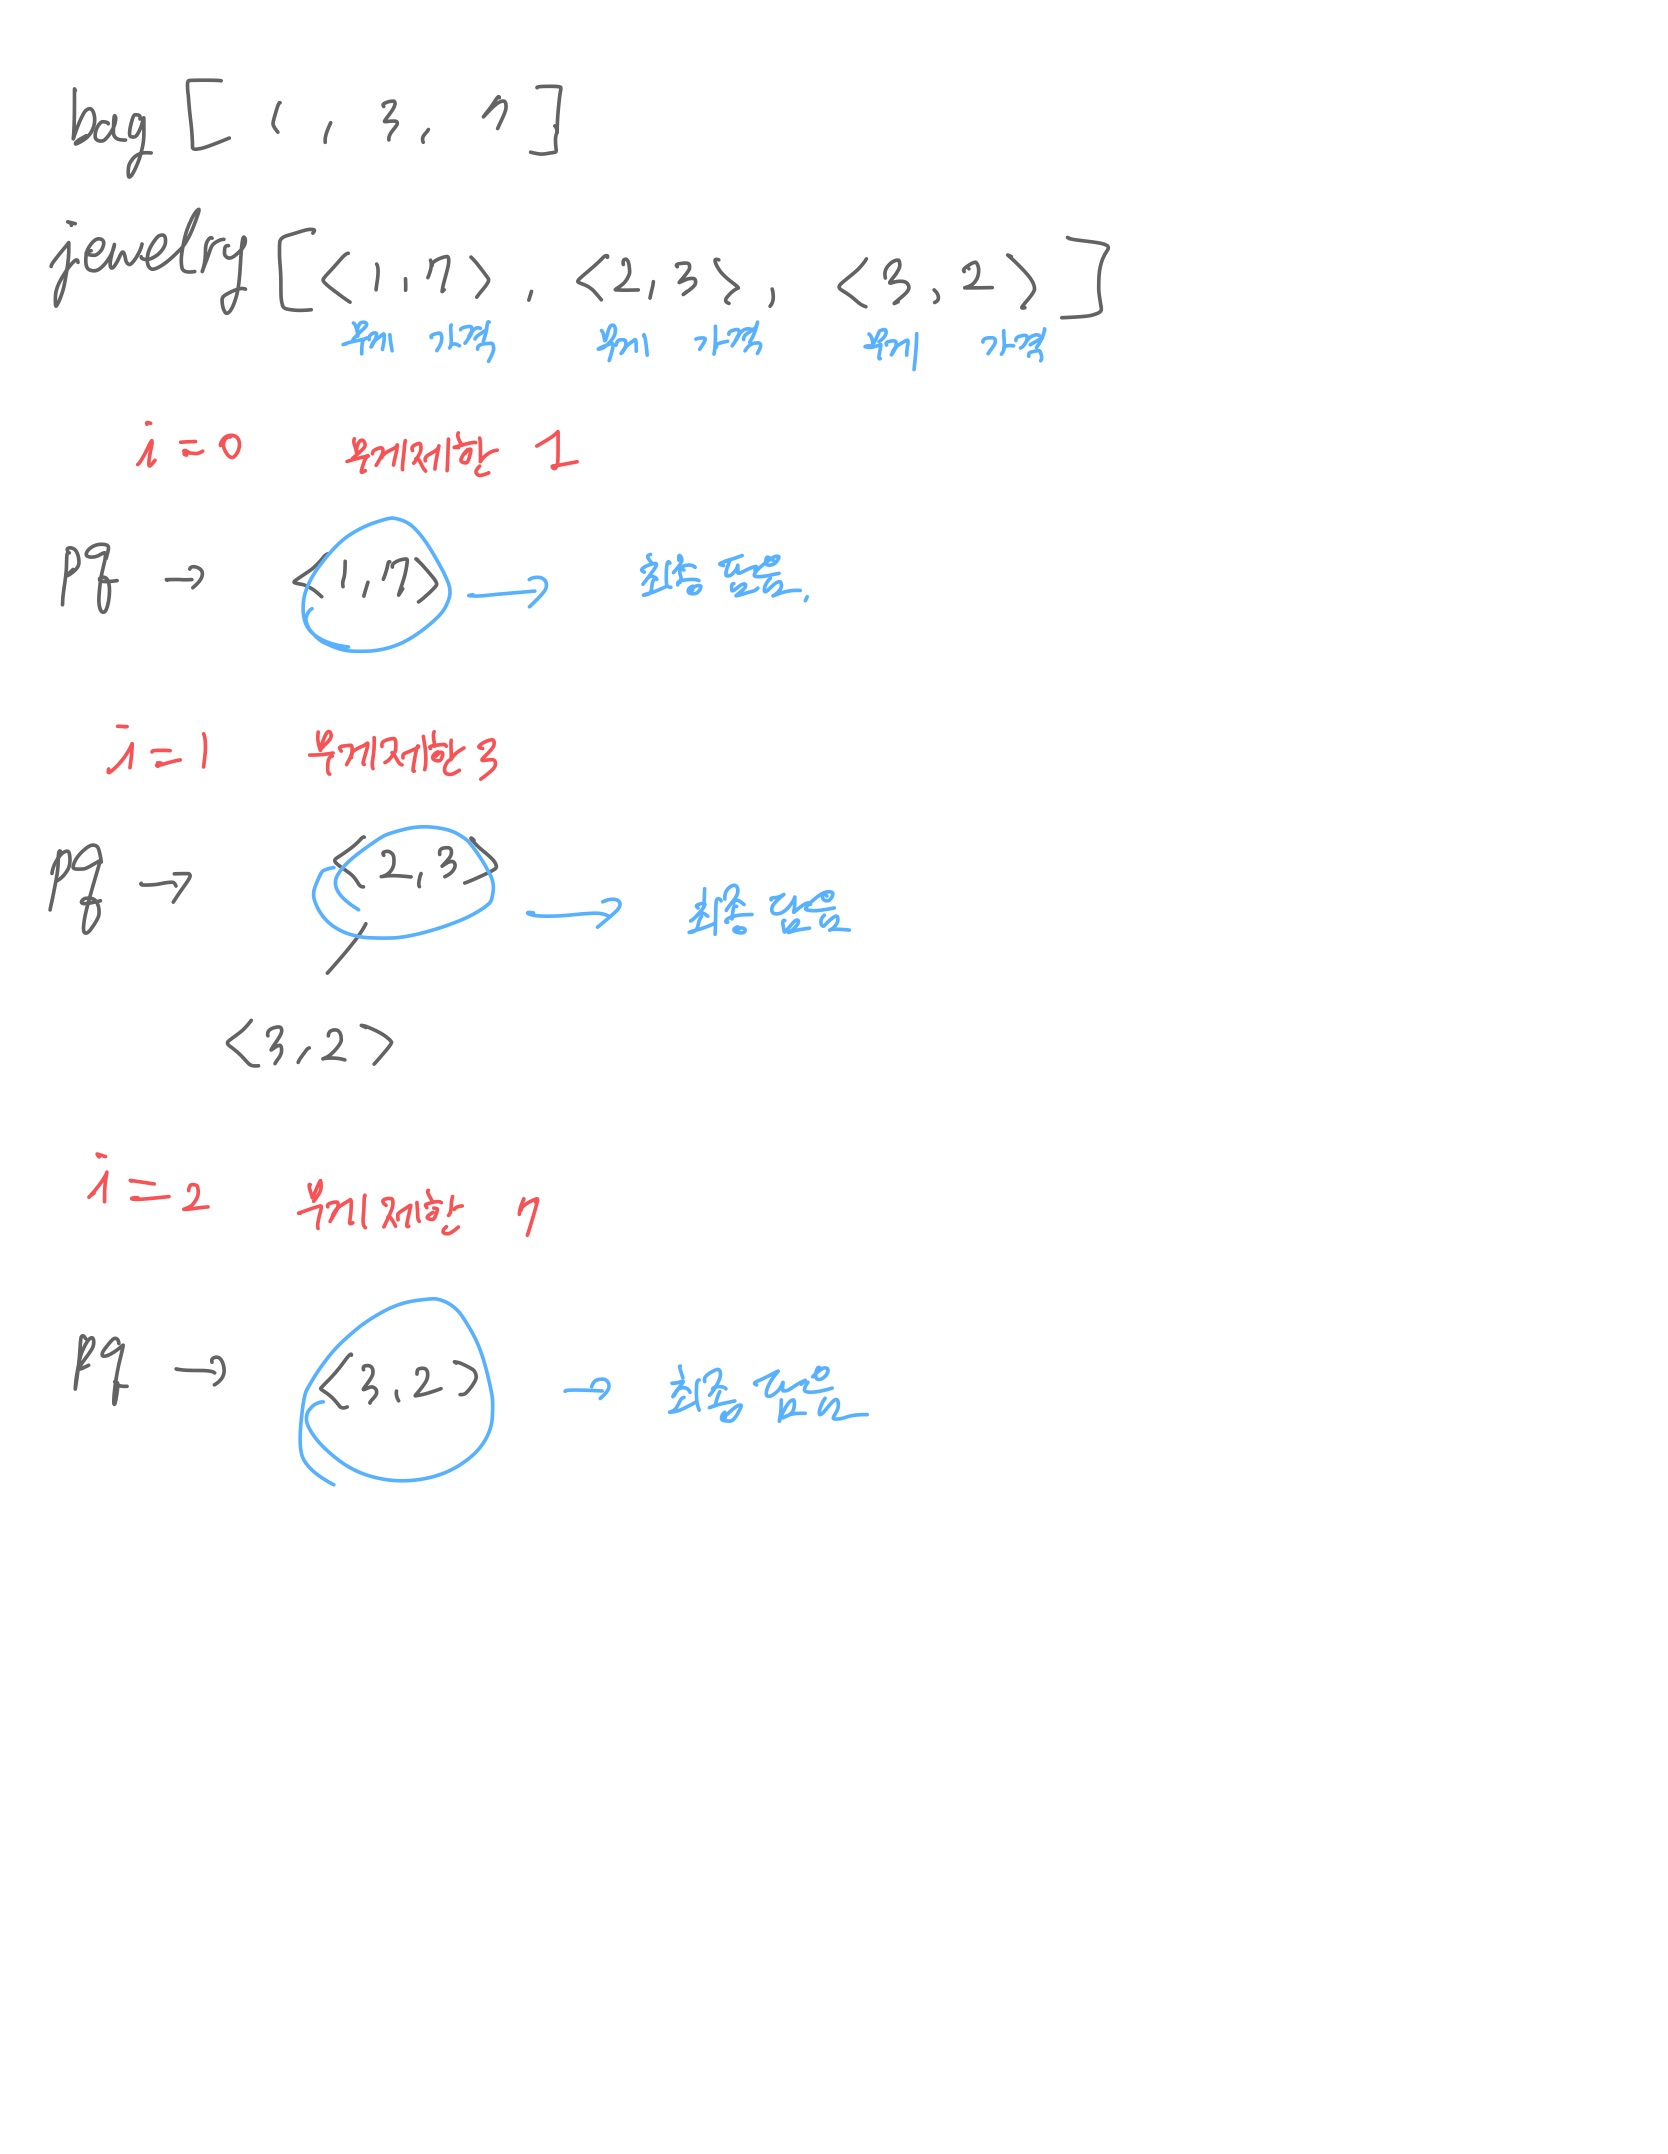 bag [ 1, 3, 7 ]
jewelry [ <1, 7>, <2, 3>, <3, 2> ]
무게 가격 무게 가격 무게 가격
i=0 무게제한 1
pq → <1, 7> → 최종 값을.
i=1 무게제한 3
pq → <2, 3> → 최종 값을
<3, 2>
i=2 무게제한 7
pq → <3, 2> → 최종 값을